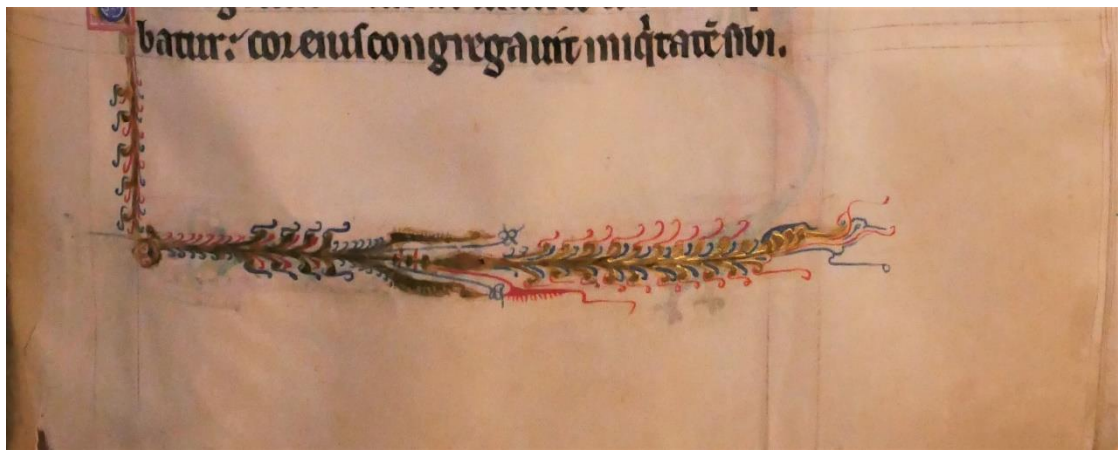 batur: cor eius congregauit iniq̇tatē sibi.